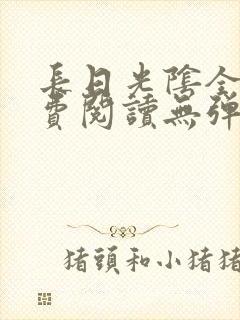 長日光陰全
費閱讀無彈
猪頭和小猪猪